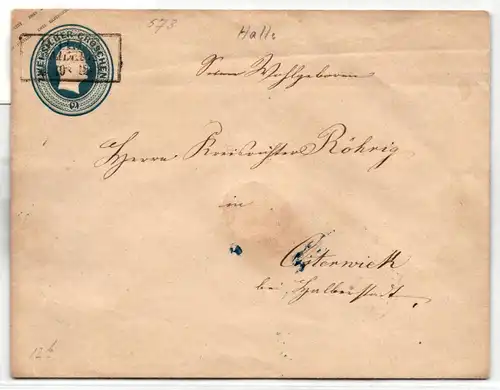 573
Halle
ZWEI SILBER GROSCHEN
HALLE
Seiner Wohlgeboren
Herrn Kreisrichter Röhrig
in
Osterwiek
bei Halberstadt